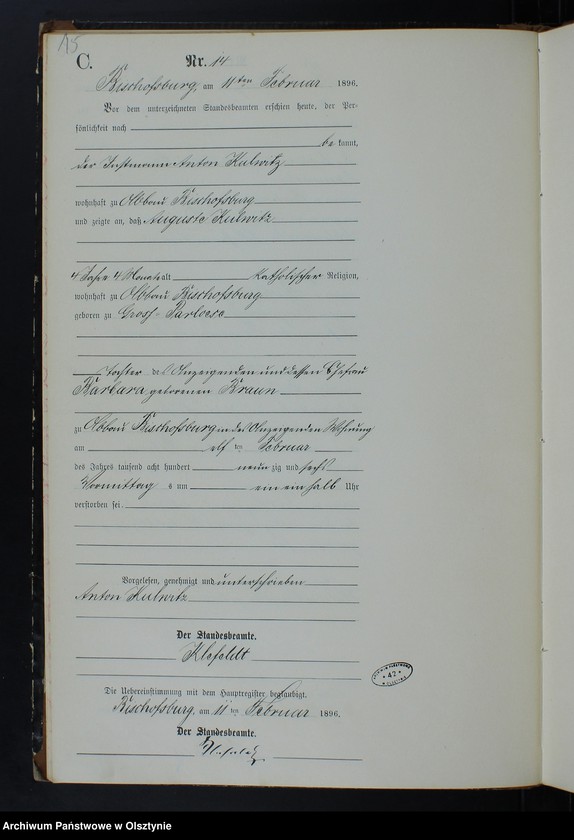 15
C.
Nr. 14
Bischofsburg, am 11ten Februar 1896.
Vor dem unterzeichneten Standesbeamten erschien heute, der Per-
sönlichkeit nach
be kannt,
der Instmann Anton Kulwitz
wohnhaft zu Abbau Bischofsburg
und zeigte an, daß Auguste Kulwitz
4 Jahre 4 Monate alt katholischer Religion,
wohnhaft zu Abbau Bischofsburg
geboren zu Gross-Parleese
Tochter des Anzeigenden und dessen Ehefrau
Barbara geborenen Braun
zu Abbau Bischofsburg in des Anzeigenden Wohnung
am elf ten Februar
des Jahres tausend acht hundert neun zig und sechs
Vormittag s um ein ein halb Uhr
verstorben sei.
Vorgelesen, genehmigt und unterschrieben
Anton Kulwitz
Der Standesbeamte.
Klefeldt
Die Uebereinstimmung mit dem Hauptregister beglaubigt.
Bischofsburg, am 11ten Februar 1896.
Der Standesbeamte.
42
Archiwum Państwowe w Olsztynie